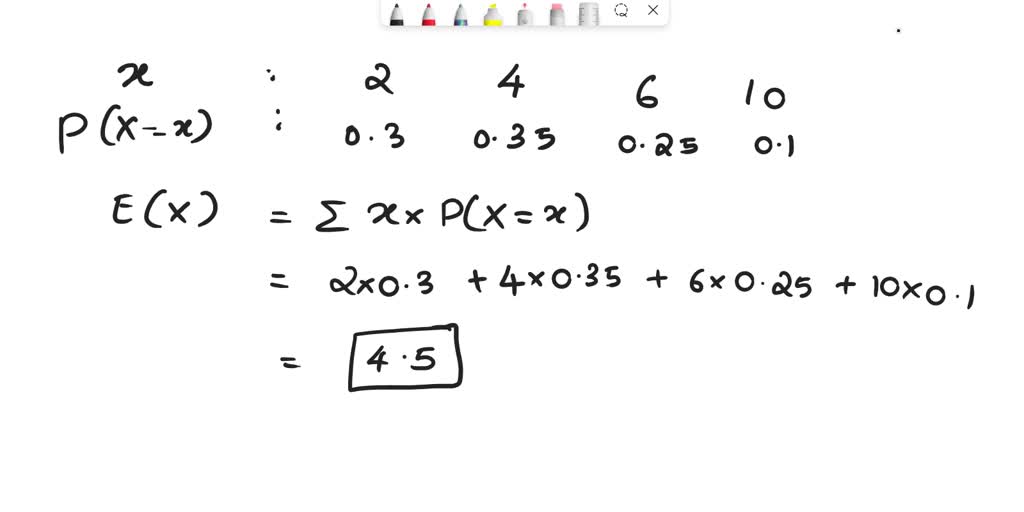 x : 2 4 6 10
P(X=x) : 0.3 0.35 0.25 0.1
E(X) = Σ x× P(X=x)
= 2×0.3 + 4×0.35 + 6×0.25 + 10×0.1
= 4.5